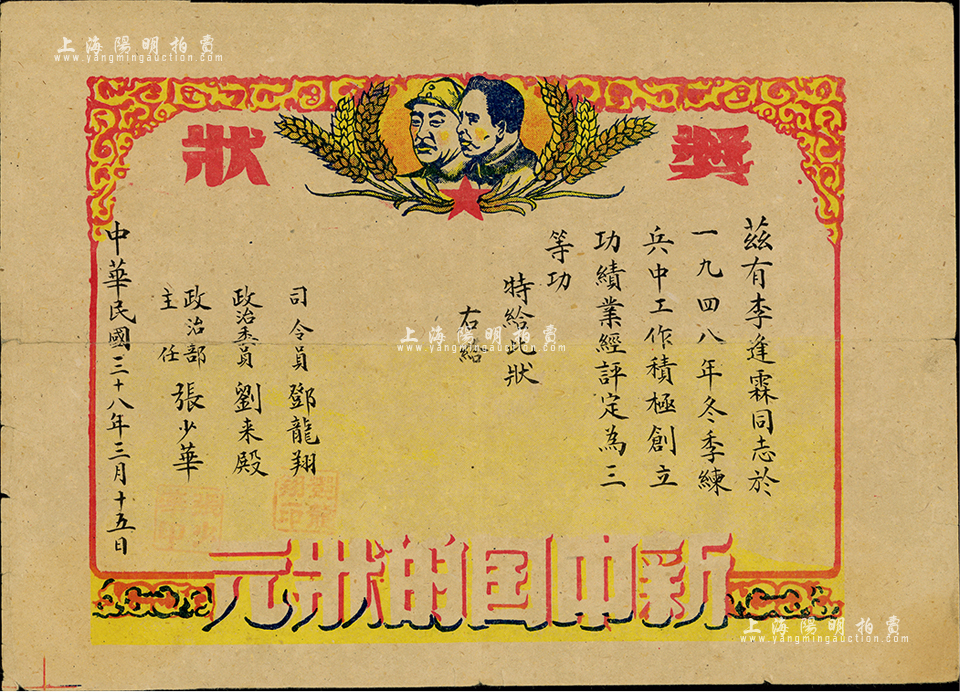 上海陽明拍賣
www.yangmingauction.com
獎狀
茲有李逢霖同志於
一九四八年冬季練
兵中工作積極創立
功績業經評定為三
等功
特給此狀
右給
司令員 鄧龍翔
政治委員 劉来殿
政治部主任 張少華
中華民國三十八年三月十五日
新中国的狀元
上海陽明拍賣
www.yangmingauction.com
上海陽明拍賣
www.yangmingauction.com